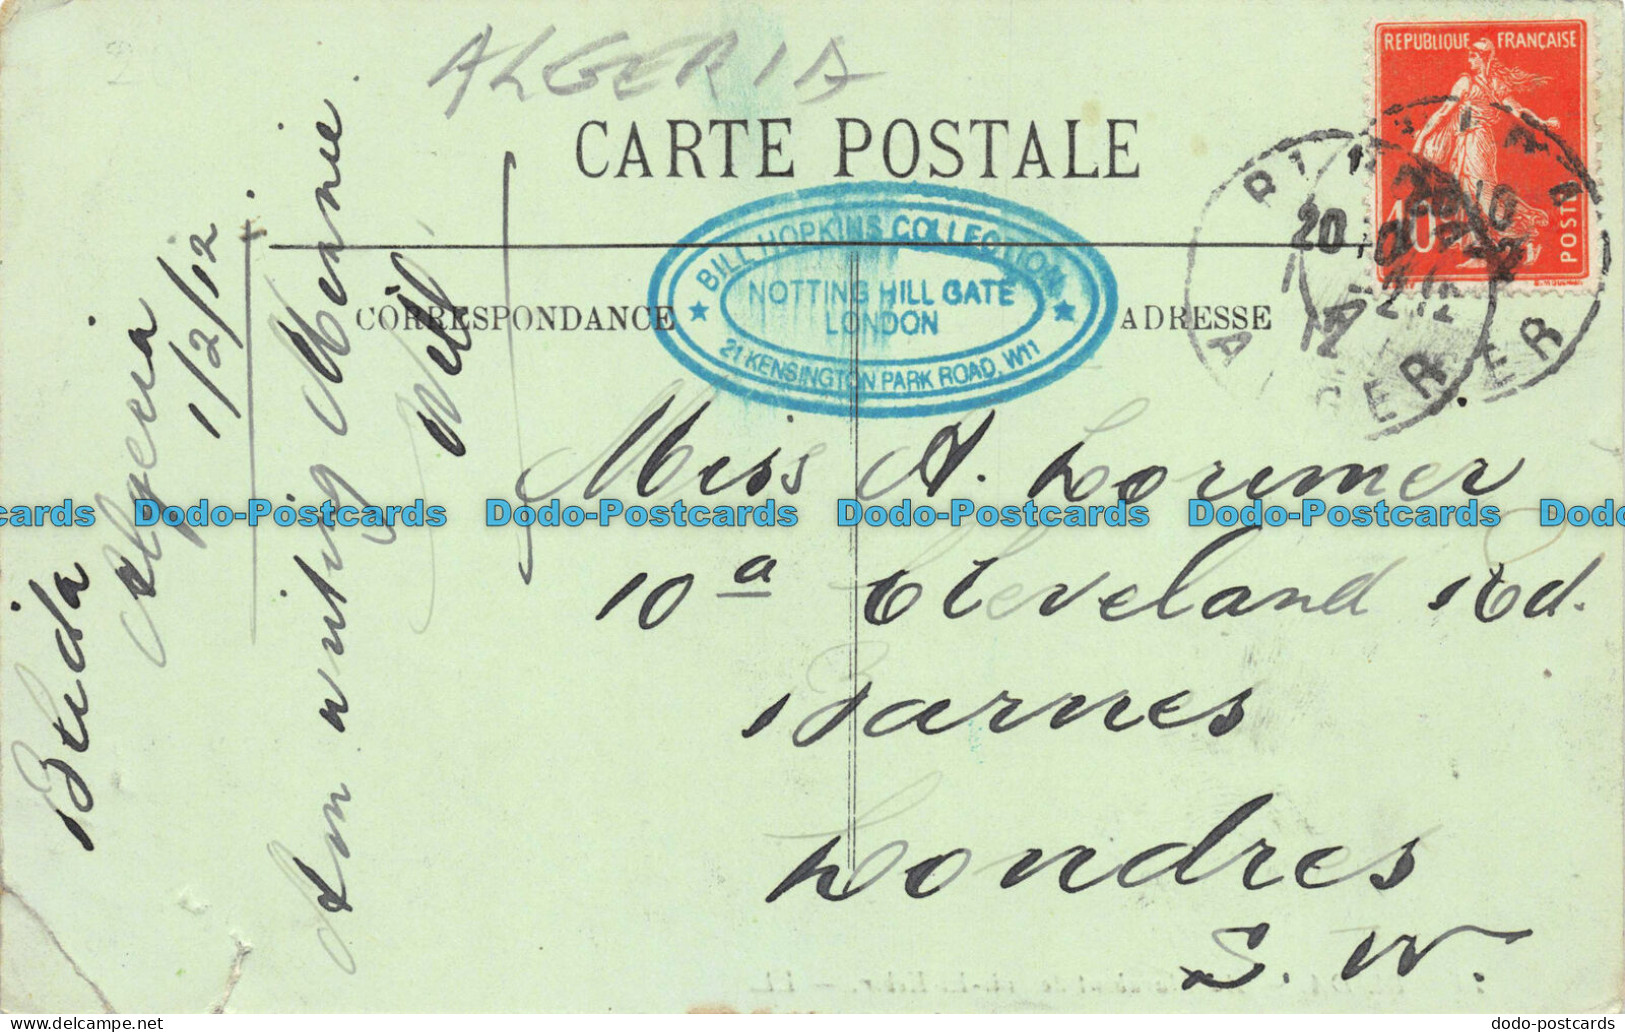 ALGERIA
CARTE POSTALE
REPUBLIQUE FRANÇAISE
10
POSTES
BLIDA
ALGER
BILL HOPKINS COLLECTION
NOTTING HILL GATE
LONDON
21 KENSINGTON PARK ROAD, W11
CORRESPONDANCE
ADRESSE
Blida
Algeria
1/2/12
Am writing Mennie
Will
Miss A. Lorimer
10a Cleveland Rd.
Barnes
Londres
S.W.
Dodo-Postcards Dodo-Postcards Dodo-Postcards Dodo-Postcards
dodo-postcards.com